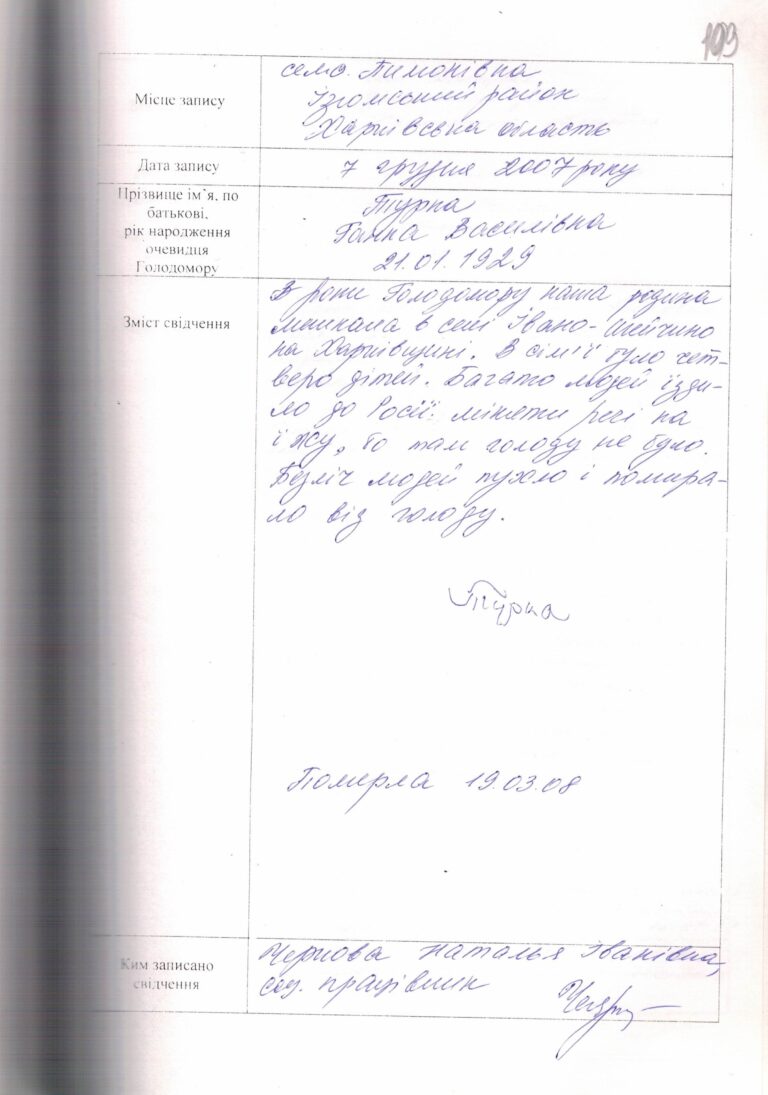 109
Місце запису
село Тимонівка
Ізюмський район
Харківська область
Дата запису
7 грудня 2007 року
Прізвище ім`я, по
батькові,
рік народження
очевидця
Голодомору
Турка
Ганна Василівна
21.01.1929
Зміст свідчення
В роки Голодомору наша родина
мешкала в селі Івано-
на Харківщині. В сім'ї було чет-
веро дітей. Багато людей їзди-
ло до Росії міняти речі на
їжу, бо там голоду не було.
Безліч людей пухло і помира-
ло від голоду.
Турка
Померла 19.03.08
Ким записано
свідчення
Чернова Наталья Іванівна,
соц. працівник